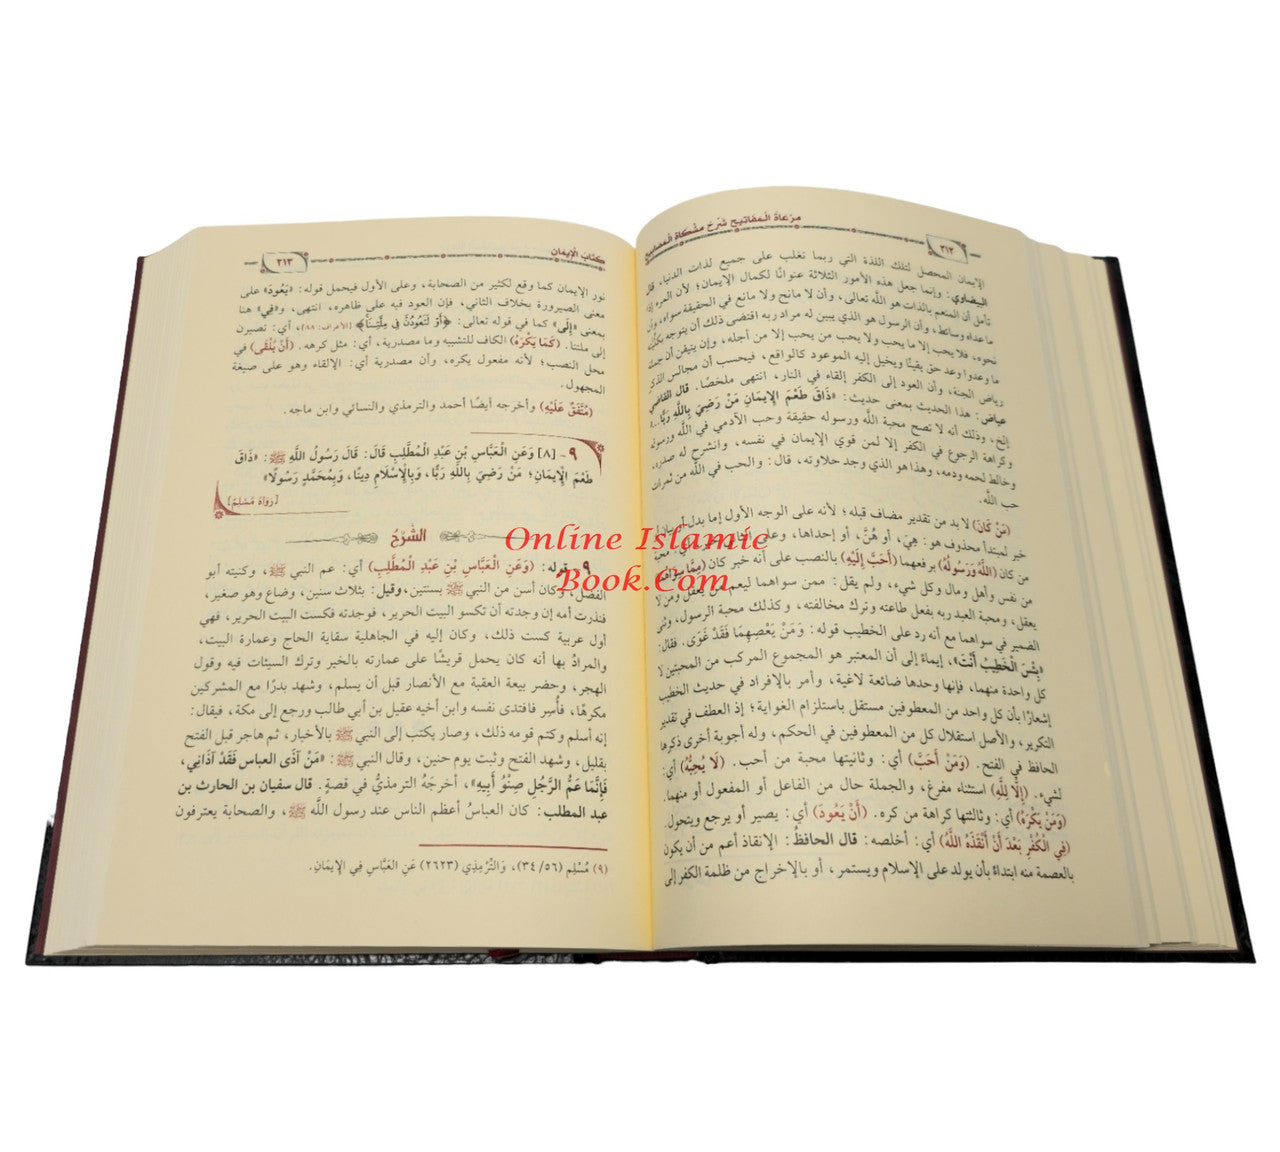 مرعاة المفاتيح شرح مشكاة المصابيح
الإيمان المحصل لتلك اللذة التي ربما تغلب على جميع لذات الدنيا، قال
البيضاوي: وإنما جعل هذه الأمور الثلاثة عنوانًا لكمال الإيمان؛ لأن المرء إذا
تأمل أن المنعم بالذات هو الله تعالى، وأن لا مانح ولا مانع في الحقيقة سواه، وأن
ما عداه وسائط، وأن الرسول هو الذي يبين له مراد ربه اقتضى ذلك أن يتوجه بكليته
نحوه، فلا يحب إلا ما يحب ولا يحب من يحب إلا من أجله، وإن يتيقن أن جملة
ما وعدوا وعد حق يقينًا ويخيل إليه الموعود كالواقع، فيحسب أن مجالس الذكر
رياض الجنة، وأن العود إلى الكفر إلقاء في النار، انتهى ملخصًا. قال القاضي
عياض: هذا الحديث بمعنى حديث: «ذَاقَ طَعْمَ الإِيمَانِ مَنْ رَضِيَ بِاللَّهِ رَبًّا..»
إلخ، وذلك أنه لا تصح محبة الله ورسوله حقيقة وحب الآدمي في الله ورسوله
وكراهة الرجوع في الكفر إلا لمن قوي الإيمان في نفسه، وانشرح له صدره،
وخالط لحمه ودمه، وهذا هو الذي وجد حلاوته، قال: والحب في الله من ثمرات
حب الله.
(مَن كَانَ) لا بد من تقدير مضاف قبله؛ لأنه على الوجه الأول إما بدل أو بيان أو
خبر لمبتدأ محذوف هو: هِيَ، أو هُنَّ، أو إحداها، وعلى الثاني خبر أي: محبة
من كان (اللَّهُ وَرَسُولُهُ) برفعهما (أَحَبَّ إِلَيْهِ) بالنصب على أنه خبر كان (مِمَّا سِوَاهُمَا)
من نفس وأهل ومال وكل شيء، ولم يقل: ممن سواهما ليعم من يعقل ومن لا
يعقل، ومحبة العبد ربه بفعل طاعته وترك مخالفته، وكذلك محبة الرسول، وثنى
الضمير في سواهما مع أنه رد على الخطيب قوله: وَمَنْ يَعْصِهِمَا فَقَدْ غَوَى. فقال:
«بِئْسَ الْخَطِيبُ أَنْتَ»، إيماءً إلى أن المعتبر هو المجموع المركب من المحبتين لا
كل واحدة منهما، فإنها وحدها ضائعة لاغية، وأمر بالإفراد في حديث الخطيب
إشعارًا بأن كل واحد من المعطوفين مستقل باستلزام الغواية؛ إذ العطف في تقدير
التكرير، والأصل استقلال كل من المعطوفين في الحكم، وله أجوبة أخرى ذكرها
الحافظ في الفتح. (وَمَنْ أَحَبَّ) أي: وثانيتها محبة من أحب. (لَا يُحِبُّهُ) أي:
لشيء. (إِلَّا لِلَّهِ) استثناء مفرغ، والجملة حال من الفاعل أو المفعول أو منهما.
(وَمَنْ يَكْرَهُ) أي: وثالثتها كراهة من كره. (أَنْ يَعُودَ) أي: يصير أو يرجع ويتحول.
(فِي الْكُفْرِ بَعْدَ أَنْ أَنْقَذَهُ اللَّهُ) أي: أخلصه: قال الحافظُ: الإنقاذ أعم من أن يكون
بالعصمة منه ابتداءً بأن يولد على الإسلام ويستمر، أو بالإخراج من ظلمة الكفر إلى
كتاب الإيمان
٣١٣
نور الإيمان كما وقع لكثير من الصحابة، وعلى الأول فيحمل قوله: «يَعُودَ» على
معنى الصيرورة بخلاف الثاني، فإن العود فيه على ظاهره، انتهى، و«فِي» هنا
بمعنى «إِلَى» كما في قوله تعالى: ﴿أَوْ لَتَعُودُنَّ فِي مِلَّتِنَا﴾ [الأعراف: ٨٨]، أي: تصيرن
إلى ملتنا. (كَمَا يَكْرَهُ) الكاف للتشبيه وما مصدرية، أي: مثل كرهه. (أَنْ يُلْقَى) في
محل النصب؛ لأنه مفعول يكره، وأن مصدرية أي: الإلقاء وهو على صيغة
المجهول.
(مُتَّفَقٌ عَلَيْهِ) وأخرجه أيضًا أحمد والترمذي والنسائي وابن ماجه.
٩- [٨] وَعَنِ الْعَبَّاسِ بْنِ عَبْدِ الْمُطَّلِبِ قَالَ: قَالَ رَسُولُ اللَّهِ ﷺ: «ذَاقَ
طَعْمَ الْإِيمَانِ؛ مَنْ رَضِيَ بِاللَّهِ رَبًّا، وَبِالْإِسْلَامِ دِينًا، وَبِمُحَمَّدٍ رَسُولًا»
[رَوَاهُ مُسْلِمٌ]
الشَّرْحُ
٩- قوله: (وَعَنِ الْعَبَّاسِ بْنِ عَبْدِ الْمُطَّلِبِ) أي: عم النبي ﷺ، وكنيته أبو
الفضل، وكان أسن من النبي ﷺ بسنتين، وقيل: بثلاث سنين، وضاع وهو صغير،
فنذرت أمه إن وجدته أن تكسو البيت الحرير، فوجدته فكست البيت الحرير، فهي
أول عربية كست ذلك، وكان إليه في الجاهلية سقاية الحاج وعمارة البيت،
والمرادُ بها أنه كان يحمل قريشًا على عمارته بالخير وترك السيئات فيه وقول
الهجر، وحضر بيعة العقبة مع الأنصار قبل أن يسلم، وشهد بدرًا مع المشركين
مكرهًا، فأُسِر فافتدى نفسه وابن أخيه عقيل بن أبي طالب ورجع إلى مكة، فيقال:
إنه أسلم وكتم قومه ذلك، وصار يكتب إلى النبي ﷺ بالأخبار، ثم هاجر قبل الفتح
بقليل، وشهد الفتح وثبت يوم حنين، وقال النبي ﷺ: «مَنْ آذَى العباس فَقَدْ آذَانِي،
فَإِنَّمَا عَمُّ الرَّجُلِ صِنْوُ أَبِيهِ»، أخرجَهُ الترمذيُّ في قصةٍ. قال سفيان بن الحارث بن
عبد المطلب: كان العباسُ أعظم الناس عند رسول الله ﷺ، والصحابة يعترفون
(٩) مُسْلِم (٣٤/٥٦)، وَالتِّرْمِذِي (٢٦٢٣) عَنِ العَبَّاس فِي الإِيمَانِ.
Online Islamic
Book.Com